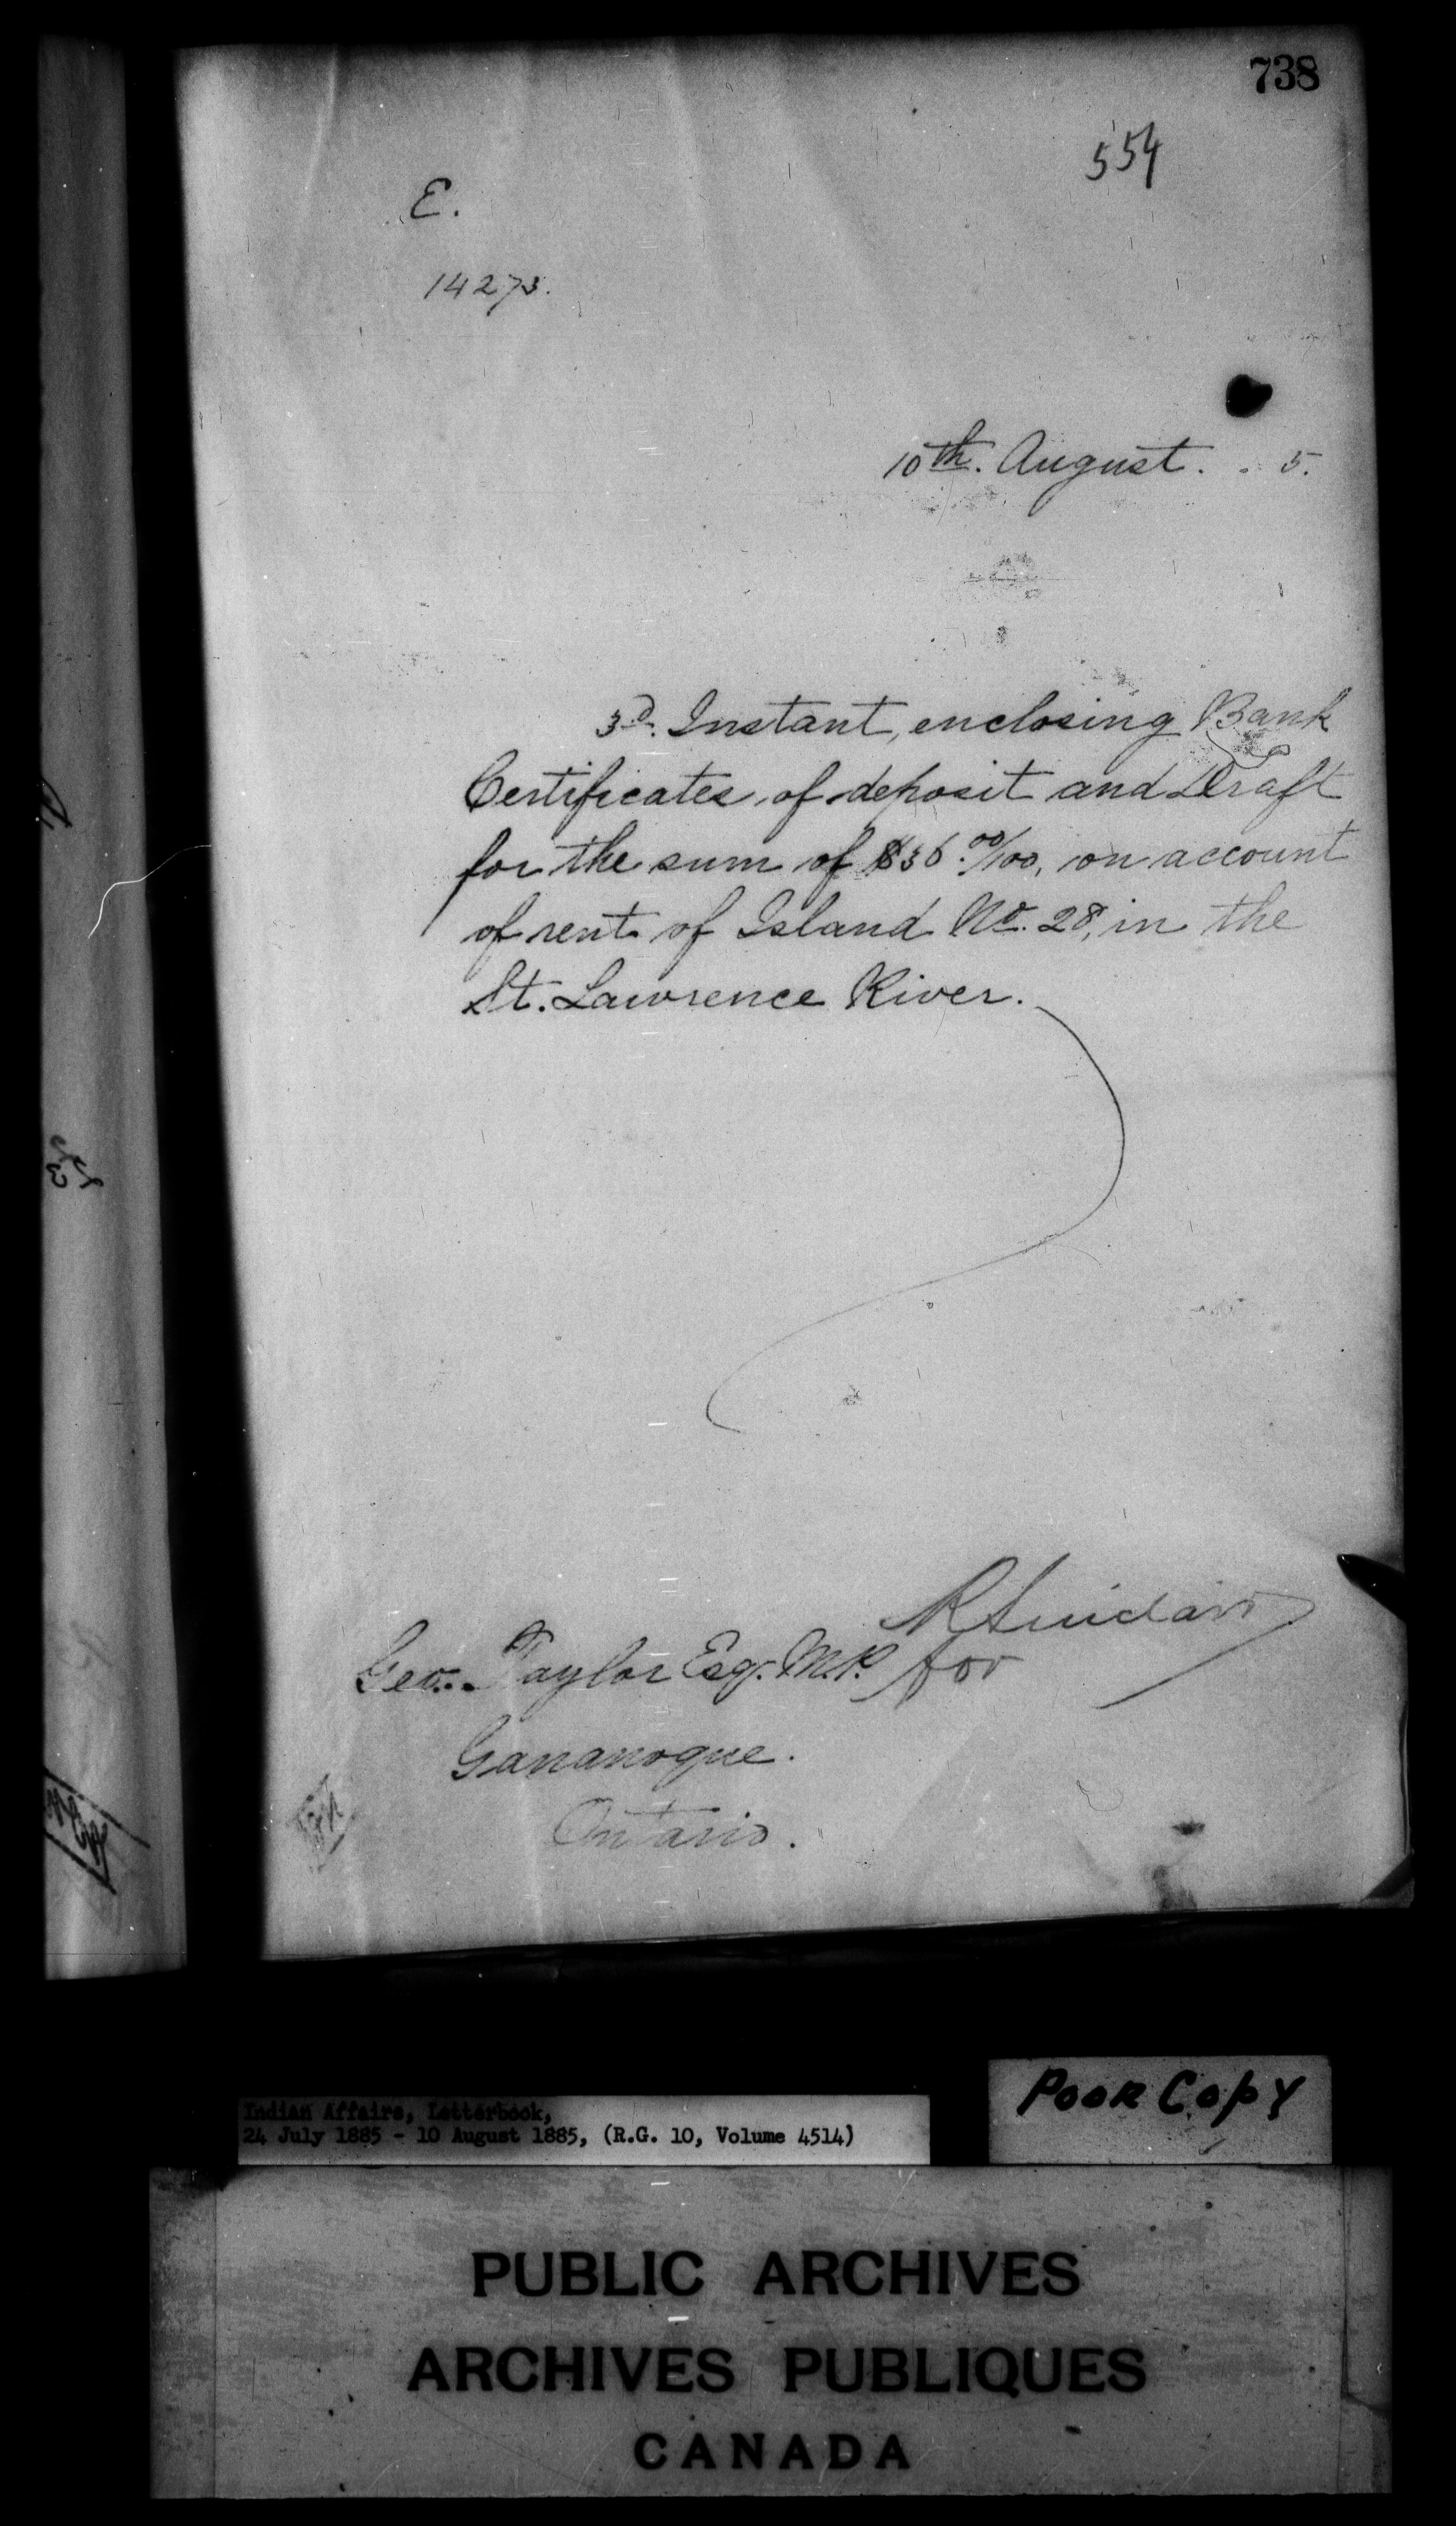 738
554
E.
14273.
10th. August. . 5.
3D. Instant, enclosing Bank
Certificates of deposit and Draft
for the sum of $36.00/100, on account
of rent of Island No. 28, in the
St. Lawrence River.
R Sinclair
Geo. Taylor Esq. M.P. for
Gananoque.
Ontario.
Poor Copy
Indian Affairs, Letterbook,
24 July 1885 - 10 August 1885, (R.G. 10, Volume 4514)
PUBLIC ARCHIVES
ARCHIVES PUBLIQUES
CANADA